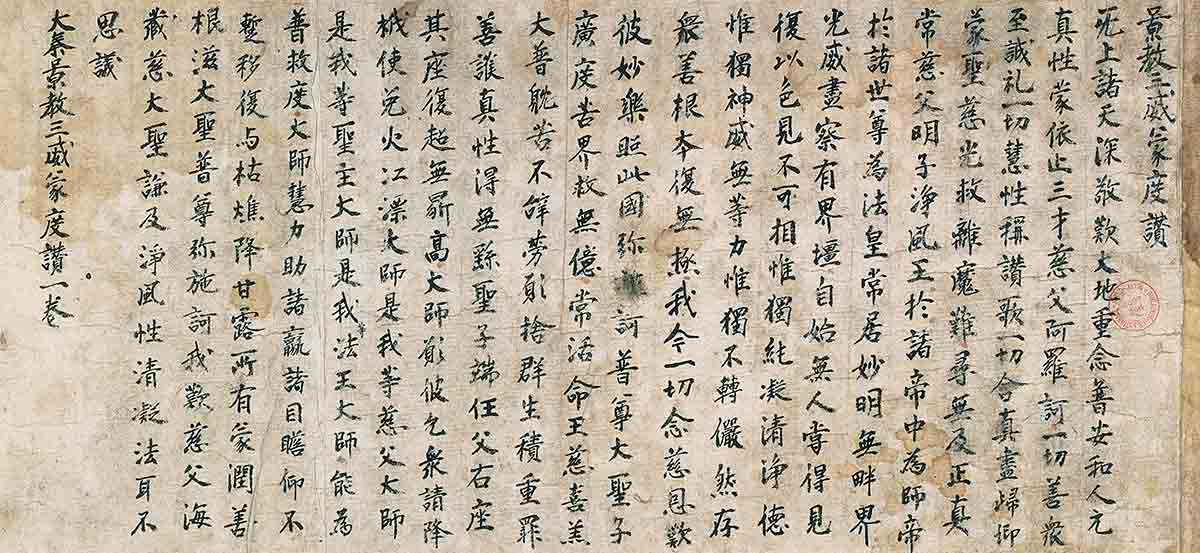 景教三威蒙度讃
无上諸天深敬歎大地重念普安和人元
真性蒙依止三才慈父阿羅訶一切善衆
至誠礼一切慧性稱讃歌一切含真盡歸仰
蒙聖慈光救離魔難尋無及正真
常慈父明子淨風王於諸帝中為師帝
於諸世尊為法皇常居妙明無畔界
光威盡察有界壃自始無人嘗得見
復以色見不可相惟獨純凝清淨德
惟獨神威無等力惟獨不轉儼然存
衆善根本復無極我今一切念慈恩歎
彼妙樂照此國弥訶普尊大聖子
廣度苦界救無億常活命王慈喜羔
大普躭苦不辝勞願捨群生積重罪
善護真性得無繇聖子端任父右座
其座復超無鼎高大師願彼乞衆請降
栰使免火江漂大師是我等慈父大師
是我等聖主大師是我法王大師能為
普救度大師慧力助諸羸諸目瞻仰不
蹔移復与枯燋降甘露所有蒙潤善
根滋大聖普尊弥施訶我歎慈父海
藏慈大聖謙及淨風性清凝法耳不
思議
大秦景教三威蒙度讃一卷